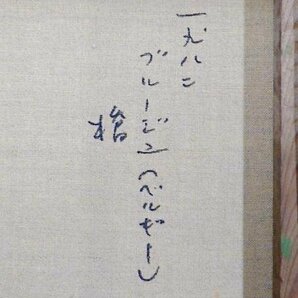 一九八二
ブルージュ(ベルギー)